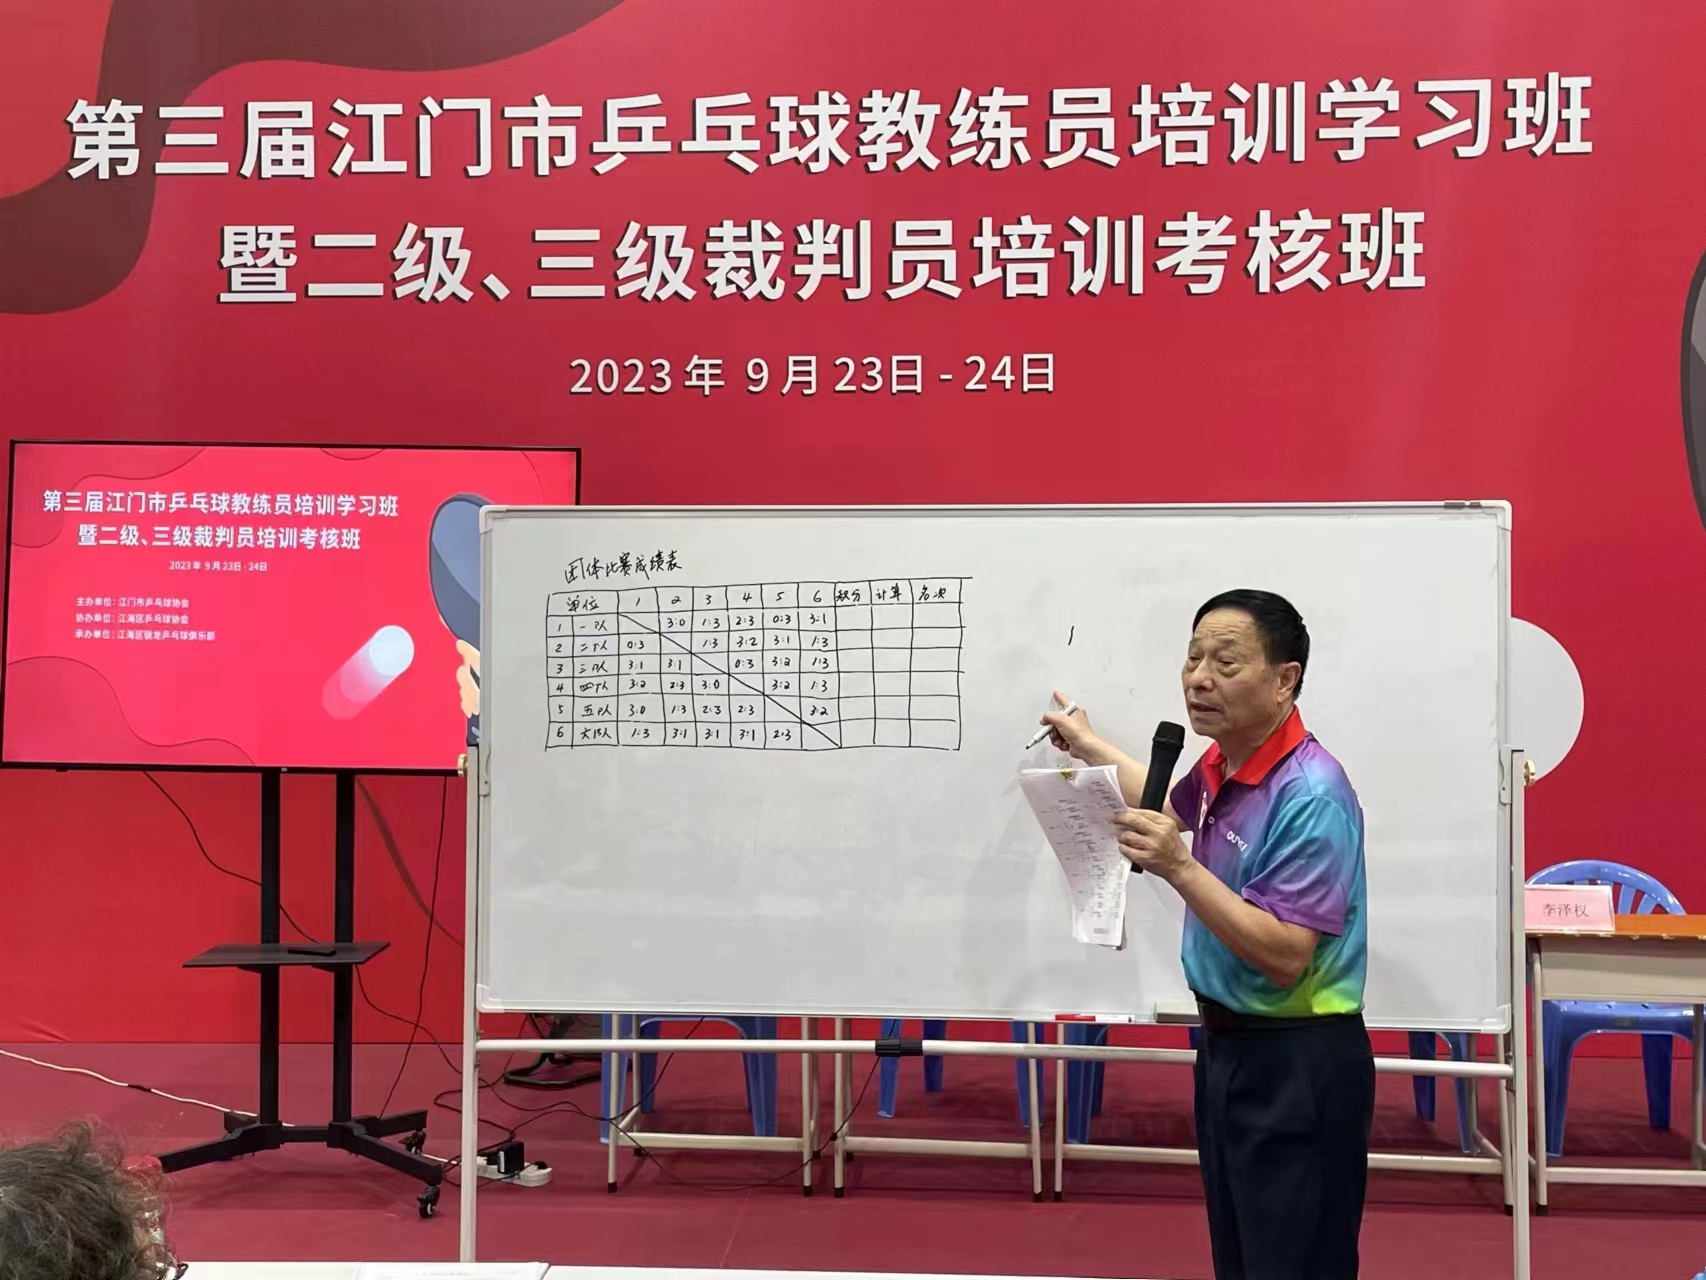 第三届江门市乒乓球教练员培训学习班
暨二级、三级裁判员培训考核班
2023年 9月23日-24日
第三届江门市乒乓球教练员培训学习班
暨二级、三级裁判员培训考核班
2023年 9月23日-24日
主办单位：江门市乒乓球协会
协办单位：江海区乒乓球协会
承办单位：江海区骏龙乒乓球俱乐部
团体比赛成绩表
单位 1 2 3 4 5 6 积分 计算 名次
1 一队 3:0 1:3 2:3 0:3 3:1
2 二队 0:3 1:3 3:2 3:1 1:3
3 三队 3:1 3:1 0:3 3:2 1:3
4 四队 3:2 2:3 3:0 3:2 1:3
5 五队 3:0 1:3 2:3 2:3 3:2
6 六队 1:3 3:1 3:1 3:1 2:3
李泽权